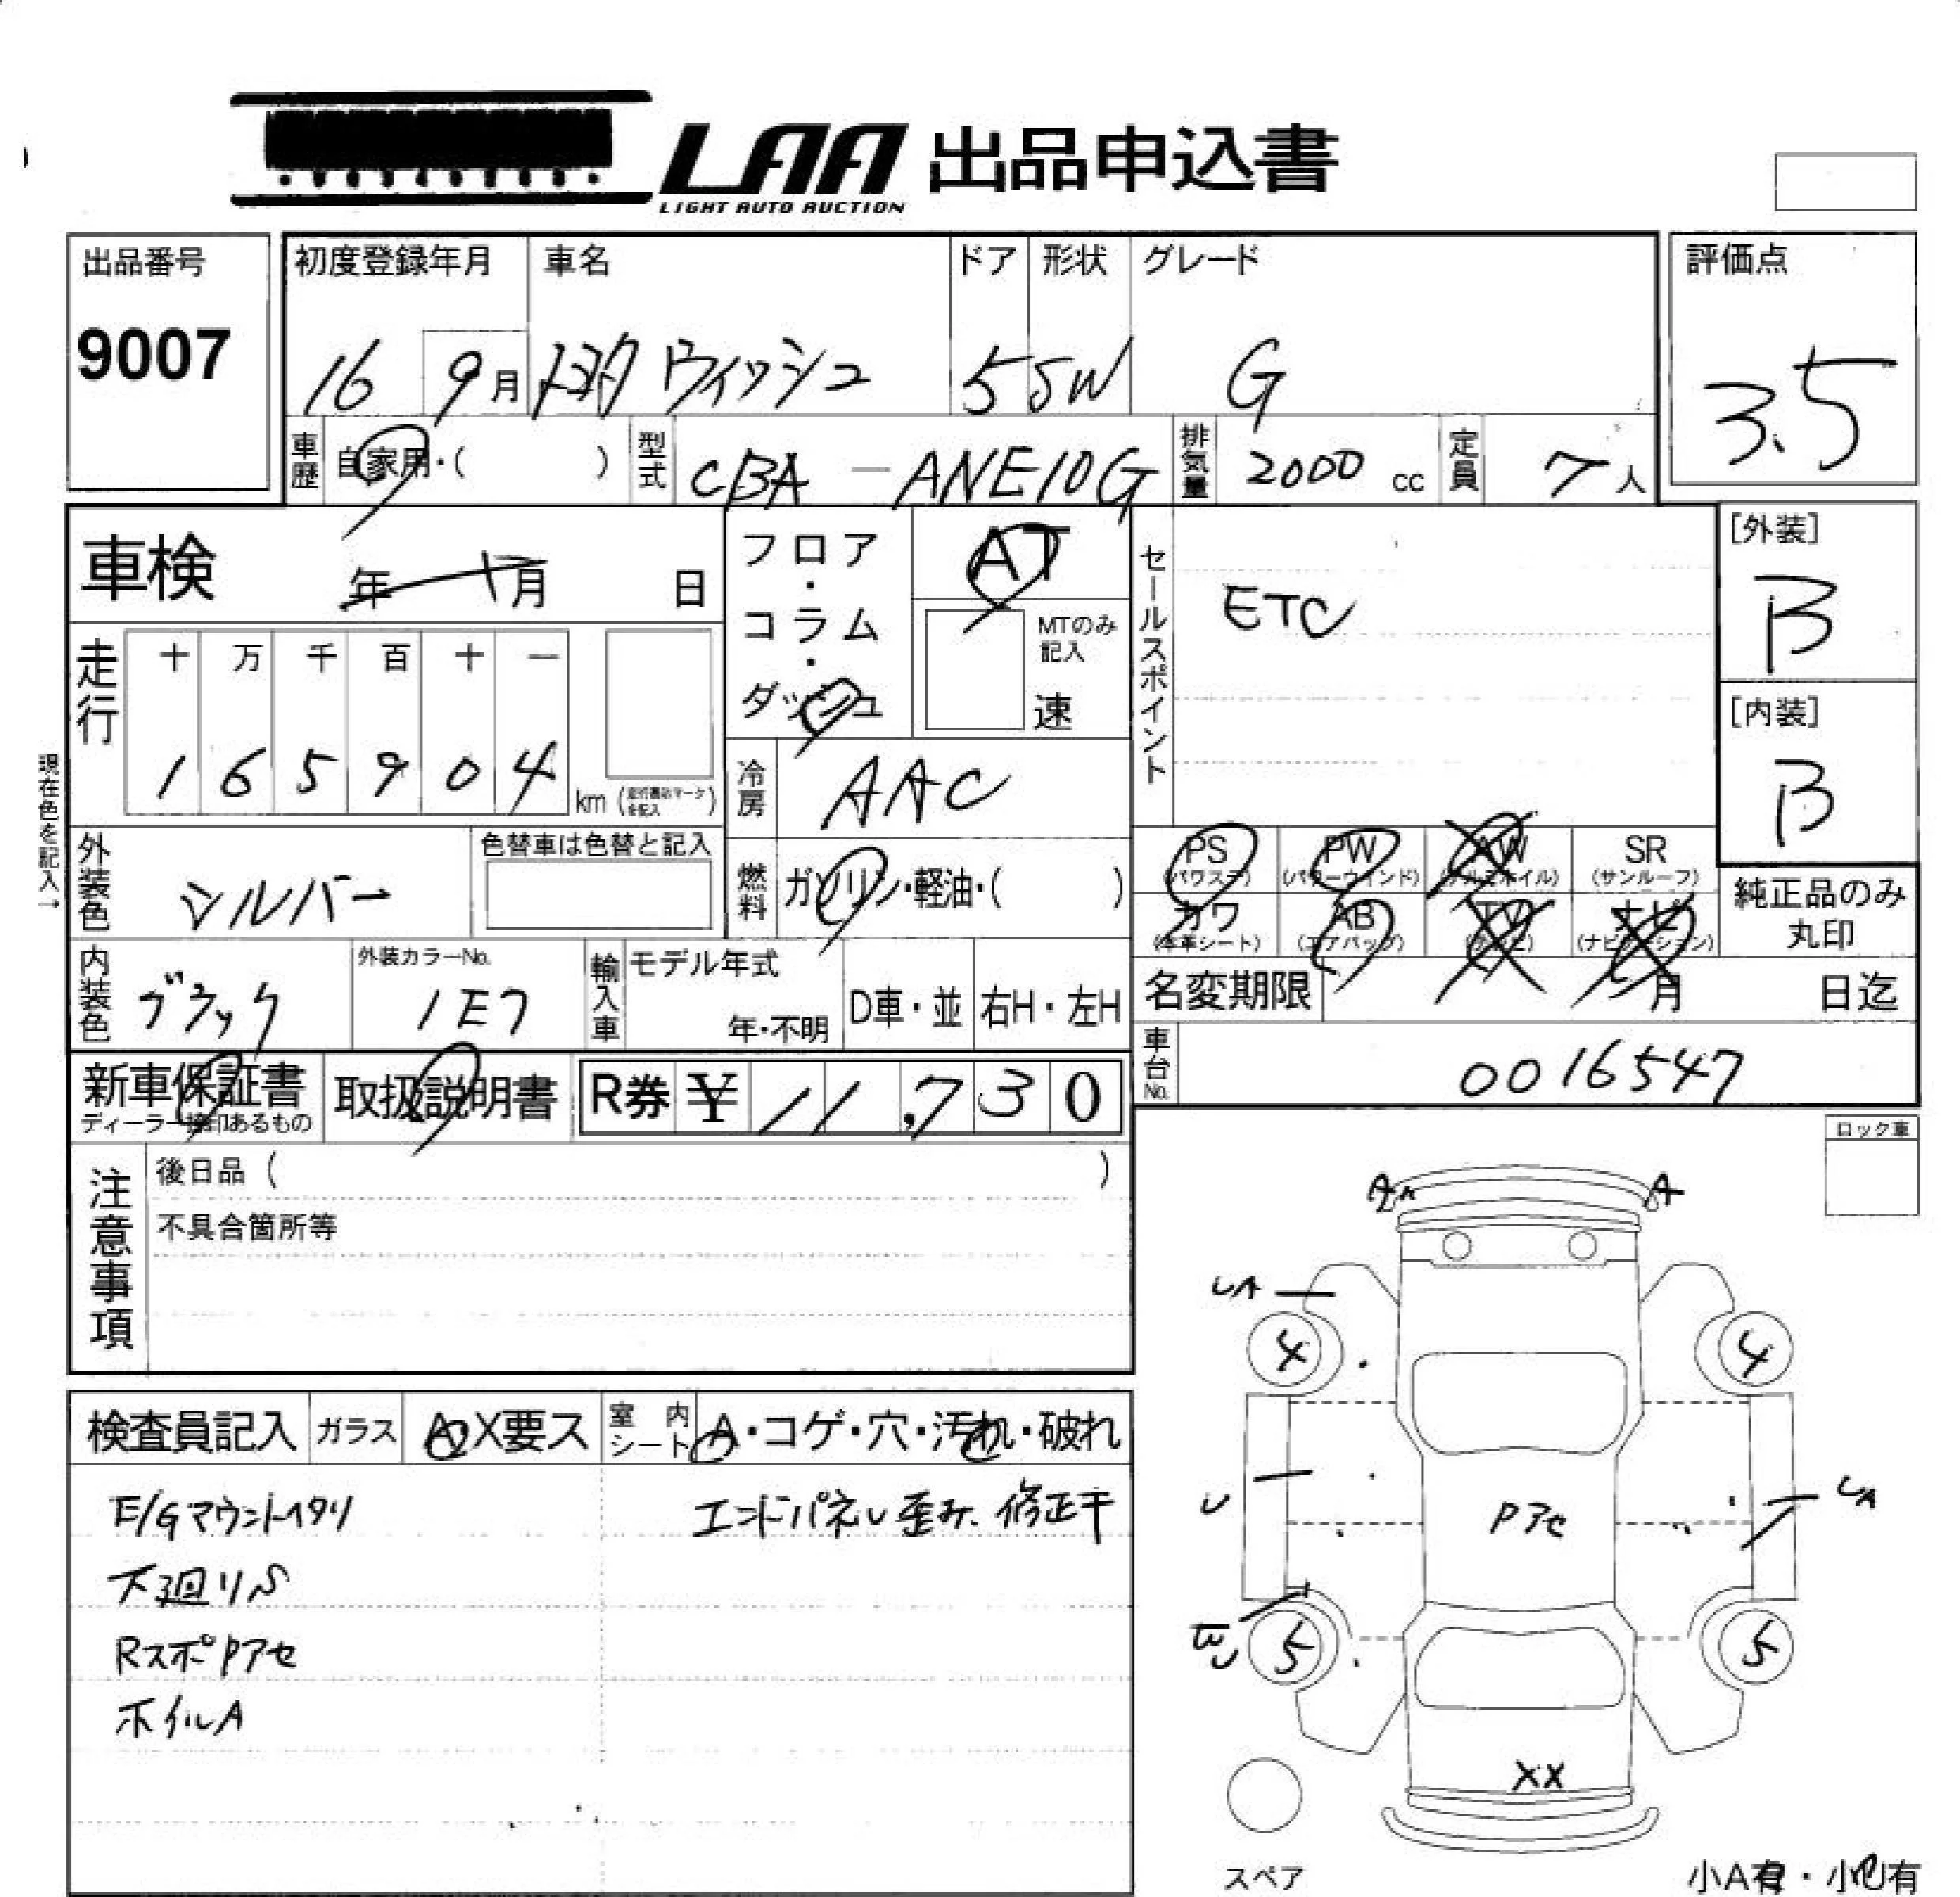 LAA 出品申込書
LIGHT AUTO AUCTION
出品番号
9007
初度登録年月 車名 ドア 形状 グレード
16 9月 トヨタ ウィッシュ 5 SW G
評価点
3.5
車歴 自家用・( ) 型式 CBA-ANE10G 排気量 2000 cc 定員 7人
車検 年 月 日
フロア・コラム・ダッシュ
AT
MTのみ記入
速
セールスポイント
ETC
[外装]
B
[内装]
B
走行 十 万 千 百 十 一
1 6 5 9 0 4 km
現在色を記入→
冷房 AAC
外装色 シルバー
色替車は色替と記入
燃料 ガソリン・軽油・( )
PS (パワステ) PW (パワーウインド) AW (アルミホイル) SR (サンルーフ)
カワ (本革シート) AB (エアバッグ) TV (テレビ) ナビ (ナビゲーション)
純正品のみ丸印
内装色 ブラック
外装カラーNo. 1E7
輸入車 モデル年式 年・不明 D車・並 右H・左H
名変期限 月 日迄
車台No. 0016547
新車保証書
ディーラー捺印あるもの
取扱説明書
R券 ¥ 11,730
注意事項
後日品 ( )
不具合箇所等
ロック車
検査員記入 ガラス A・X要ス 室内シート A・コゲ・穴・汚れ・破れ
E/Gマウントヘタリ エンドパネル歪み、修正干
下廻りS
RスポPアセ
ホイルA
A A
UA
4 4
U Pアセ UA
5 5
XX
スペア
小A有・小U有